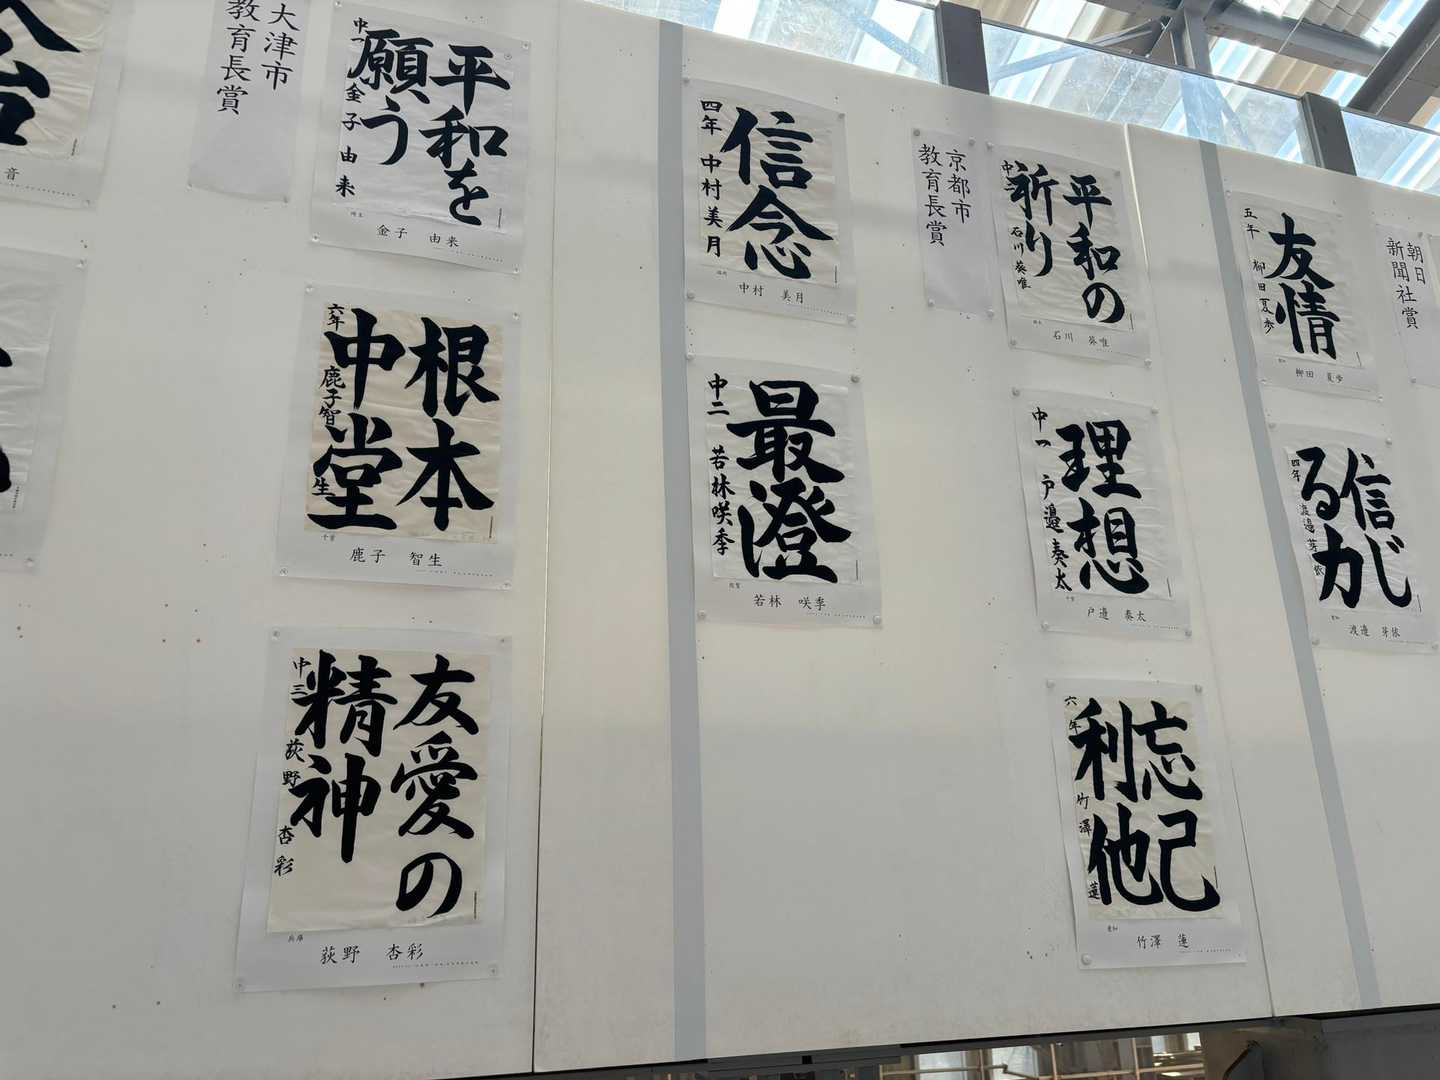 音
大津市
教育長賞
平和を
願う
中一 金子由来
金子 由来
根本
中堂
六年 鹿子智生
千葉
鹿子 智生
友愛の
精神
中三 荻野 杏彩
兵庫
荻野 杏彩
信念
四年 中村美月
中村 美月
最澄
中二 若林咲季
若林 咲季
京都市
教育長賞
平和の
祈り
石川葵唯
石川 葵唯
理想
中一 戸邉奏太
千葉
戸邉 奏太
忘己
利他
六年 竹澤蓮
竹澤 蓮
友情
五年 柳田夏歩
柳田 夏歩
信じ
る力
四年 渡邉芽依
渡邉 芽依
朝日
新聞社賞